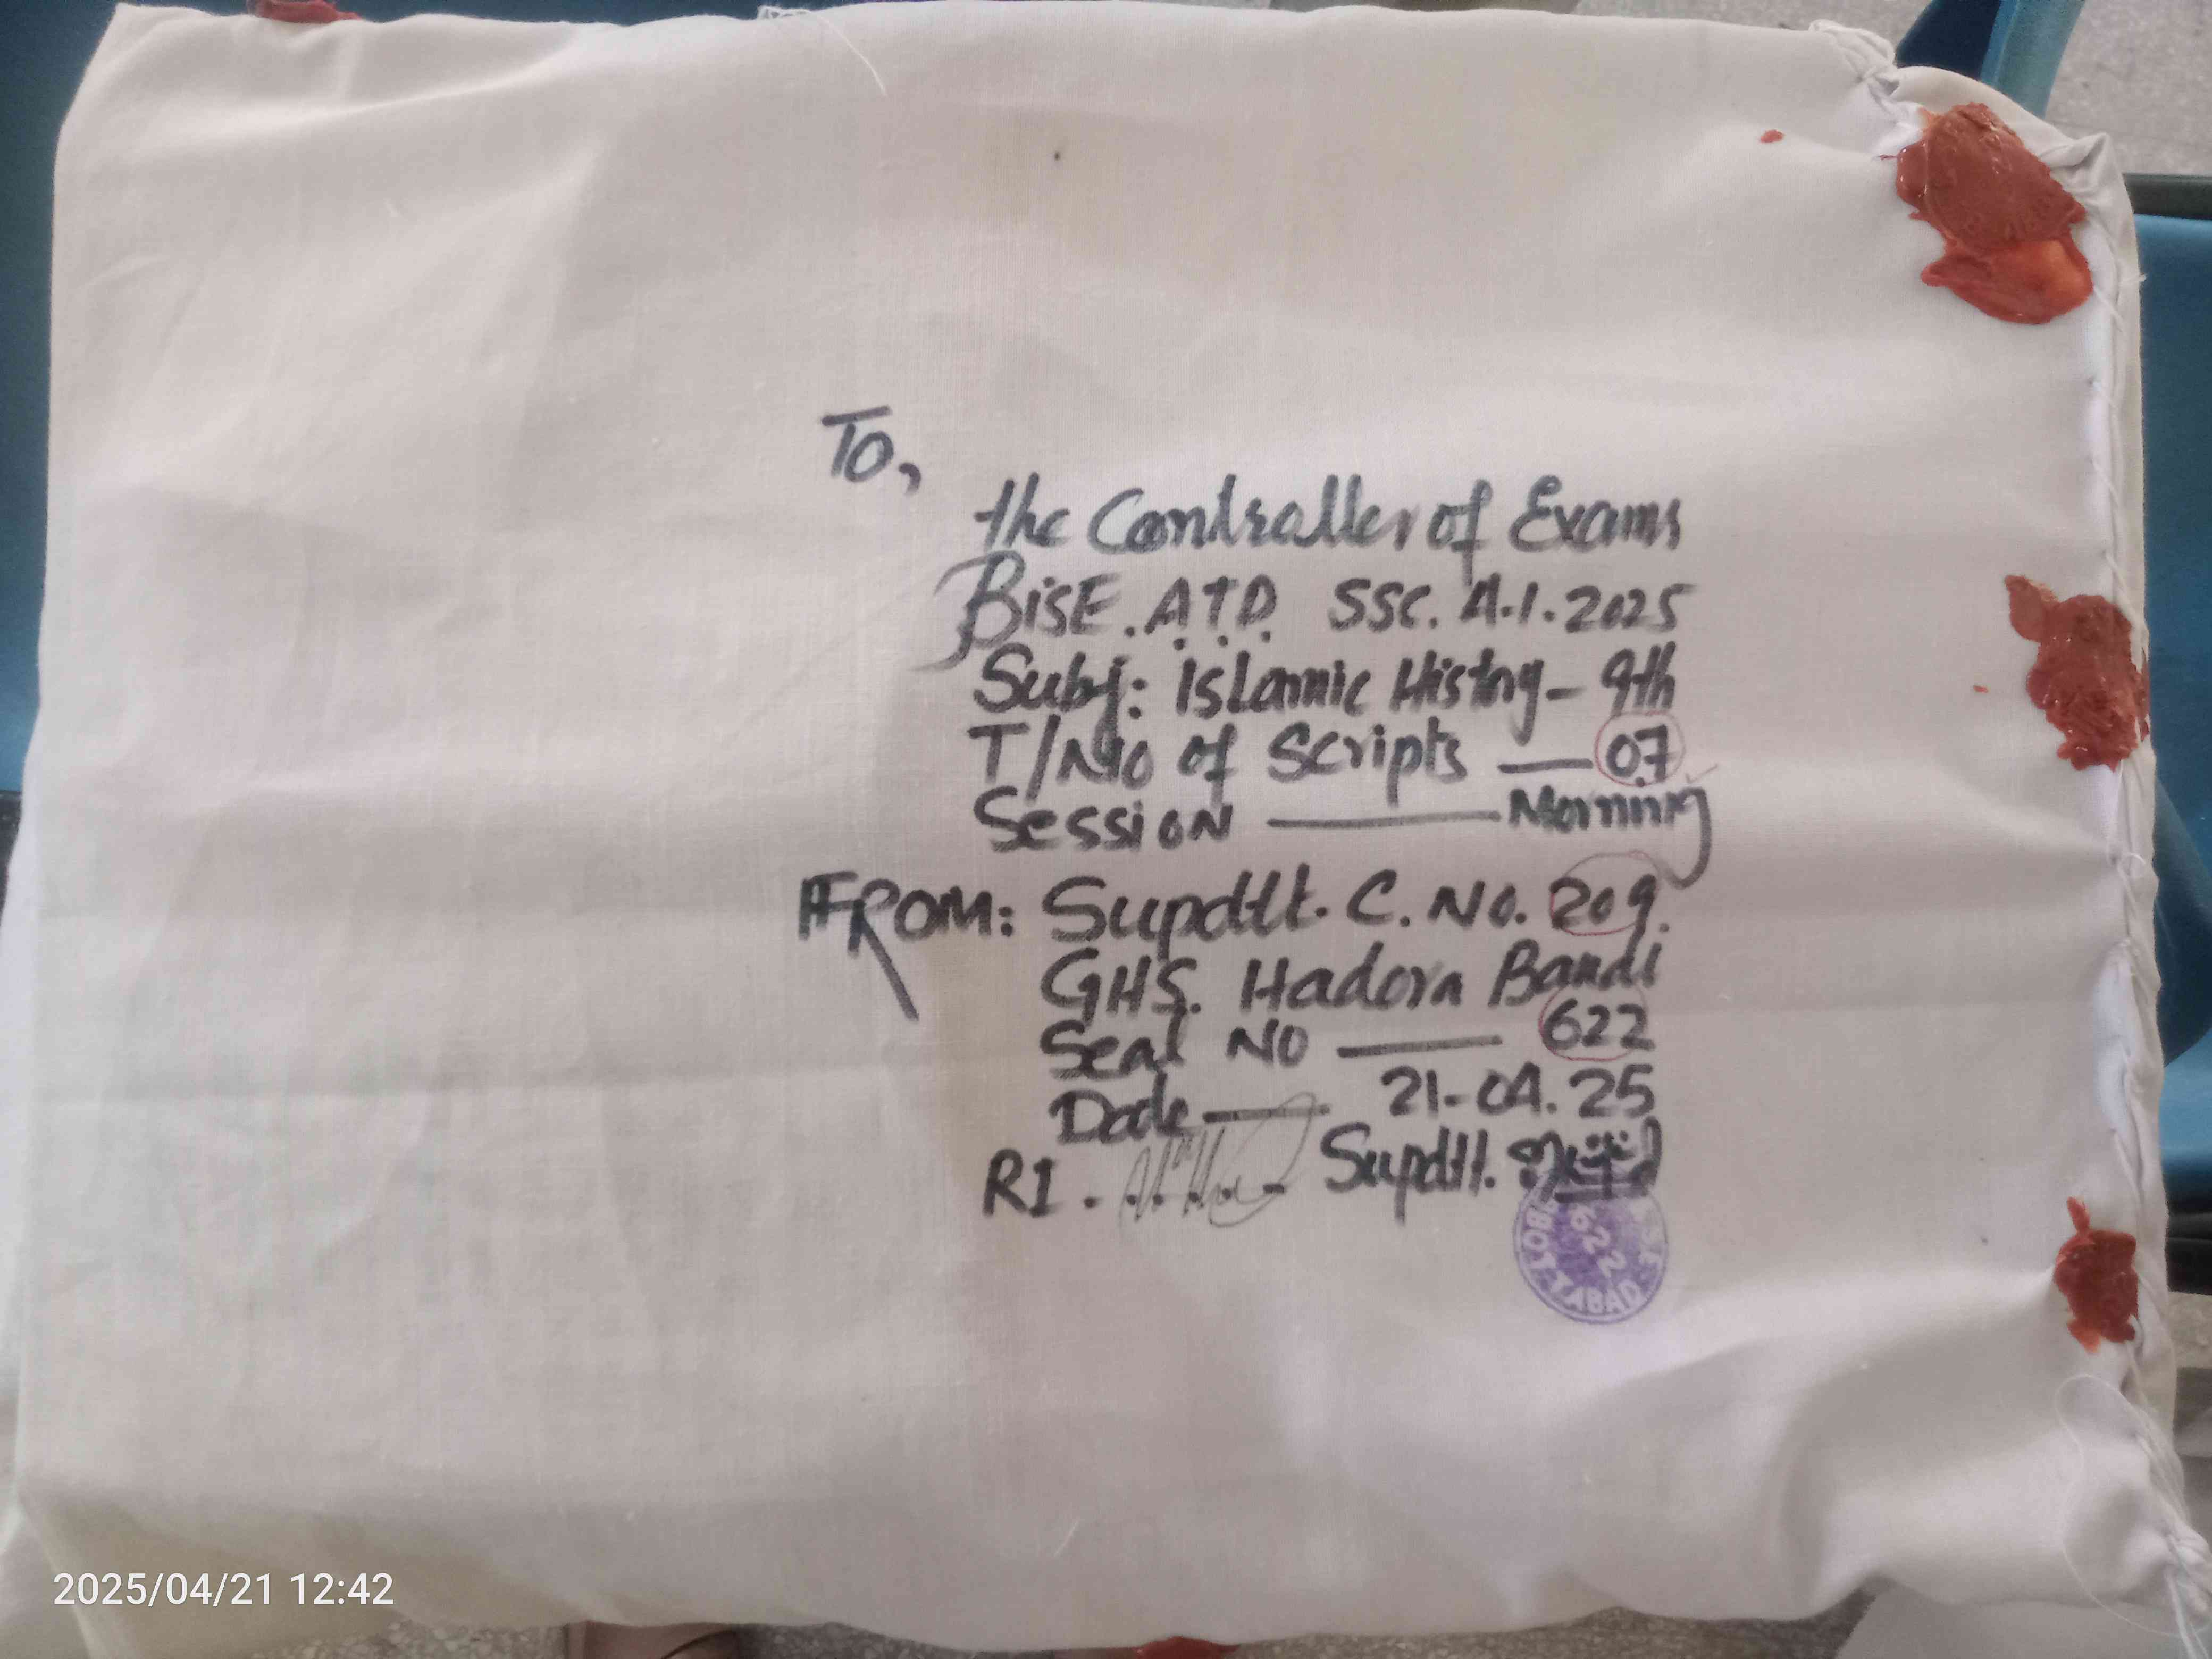 To,
the Controller of Exams
BISE. A.T.D. SSC. A-1. 2025
Subj: Islamic History - 9th
T/No of Scripts — 07
Session — Morning
FROM: Supdtt. C. No. 209.
GHS. Hadora Bandi
Seal NO — 622
Date — 21-04.25
R1. Supdtt.
622
2025/04/21 12:42